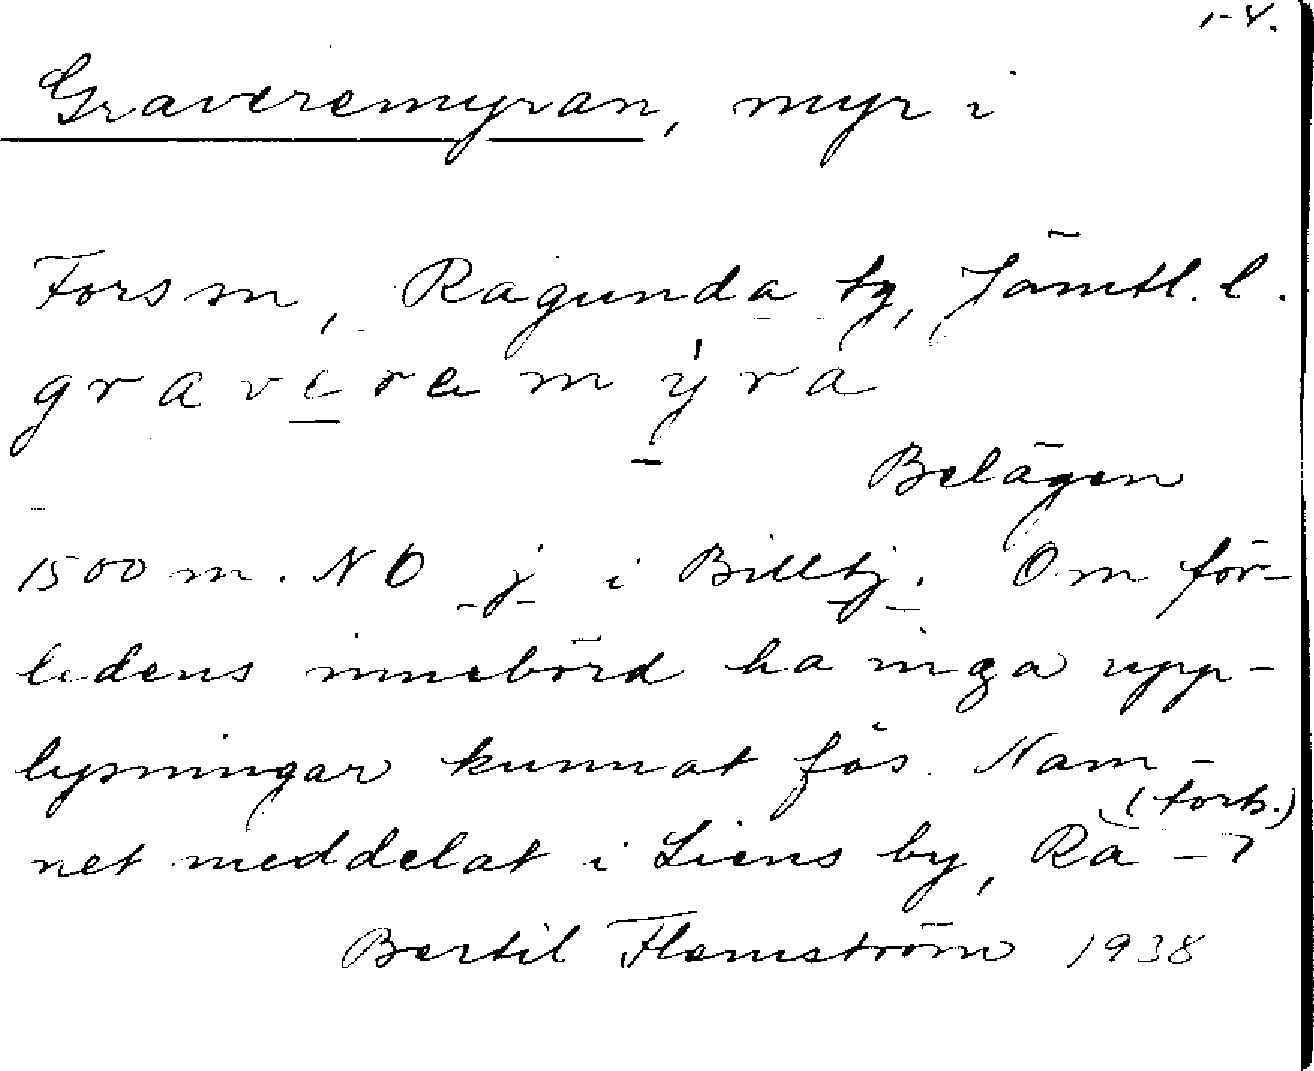 1-4.
Graveremyran, myr i
Fors sn, Ragunda tg, Jämtl. l.
graveremýra
Belägen
1500 m. NO j i Billtj. Om för-
ledens innebörd ha inga upp-
lysningar kunnat fås. Nam-
(forts.)
net meddelat i Liens by, Ra-
Bertil Flemström 1938